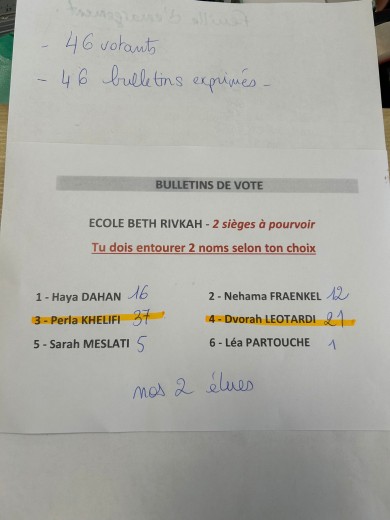 - 46 votants
- 46 bulletins exprimés -
BULLETINS DE VOTE
ECOLE BETH RIVKAH - 2 sièges à pourvoir
Tu dois entourer 2 noms selon ton choix
1 - Haya DAHAN 16
2 - Nehama FRAENKEL 12
3 - Perla KHELIFI 37
4 - Dvorah LEOTARDI 21
5 - Sarah MESLATI 5
6 - Léa PARTOUCHE 1
nos 2 élues